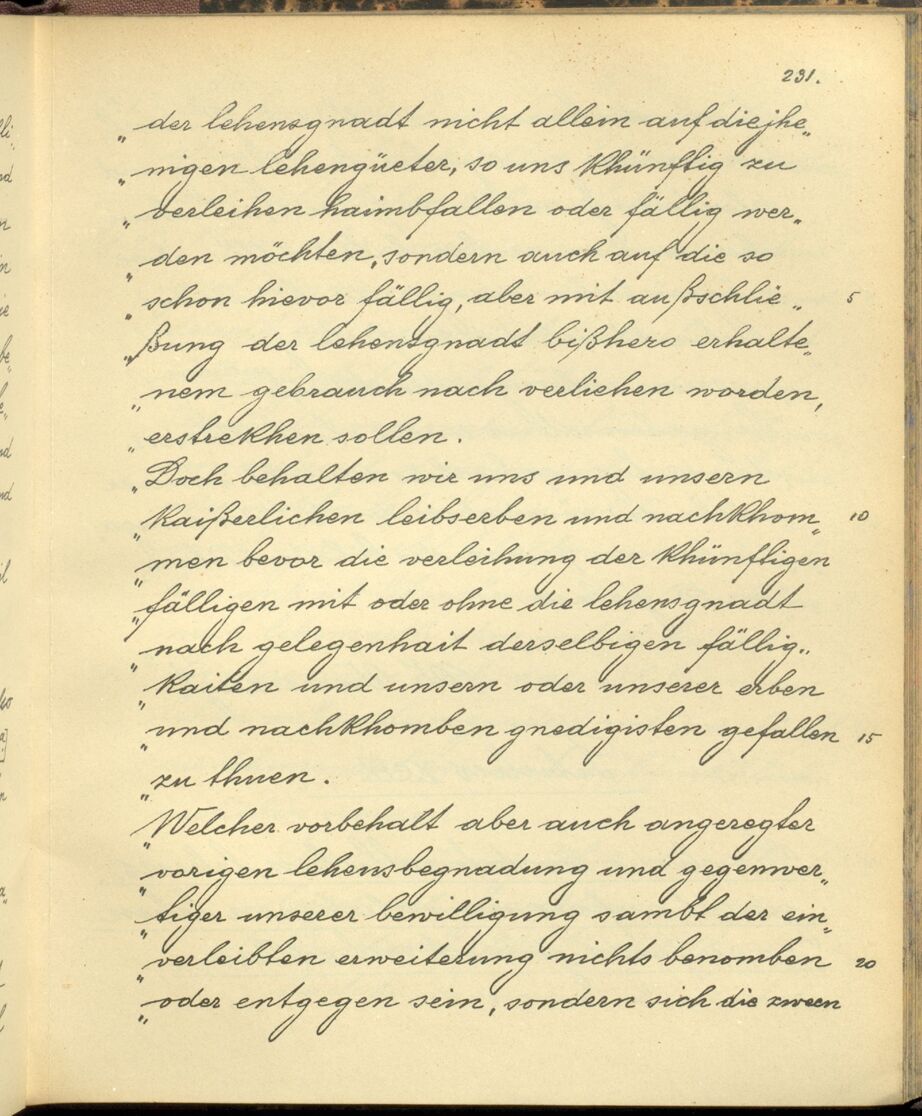 231.
„ der lehensgnadt nicht allein auf die jhe„
„ nigen lehengüeter, so uns khünftig zu
„ verleihen haimbfallen oder fällig wer„
„ den möchten, sondern auch auf die so
„ schon hievor fällig, aber mit außschlie„ 5
„ ßung der lehensgnadt bißhero erhalte„
„ nem gebrauch nach verliehen worden,
„ erstrekhen sollen.
„ Doch behalten wir uns und unsern
„ kaißerlichen leibserben und nachkhom„ 10
„ men bevor die verleihung der khünftigen
„ fälligen mit oder ohne die lehensgnadt
„ nach gelegenhait derselbigen fällig„
„ kaiten und unsern oder unserer erben
„ und nachkhomben gnedigisten gefallen 15
„ zu thuen.
„ Welcher vorbehalt aber auch angeregter
„ vorigen lehensbegnadung und gegenwer„
„ tiger unserer bewilligung sambt der ein„
„ verleibten erweiterung nichts benomben 20
„ oder entgegen sein, sondern sich die zween